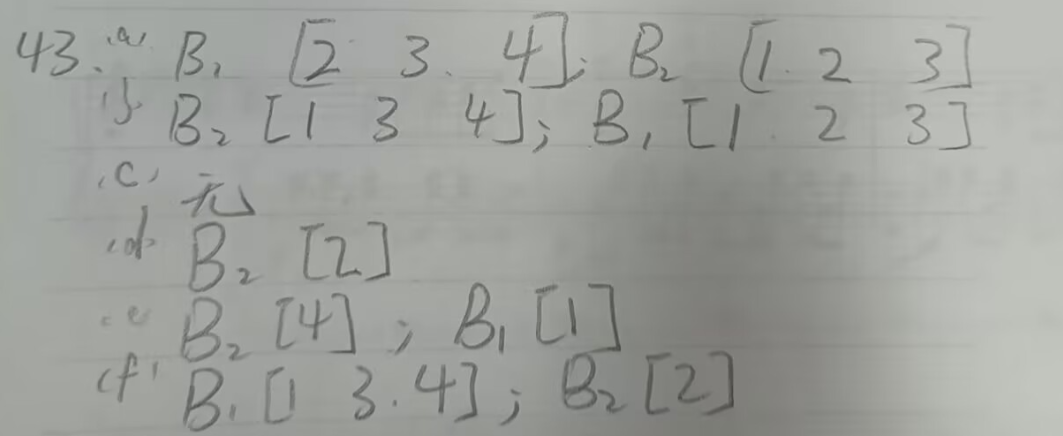 43. (a) B₁ [2 3. 4]; B₂ [1. 2 3]
(b) B₂ [1 3 4]; B₁ [1. 2 3]
(c) 无
(d) B₂ [2]
(e) B₂ [4]; B₁ [1]
(f) B₁ [1 3. 4]; B₂ [2]